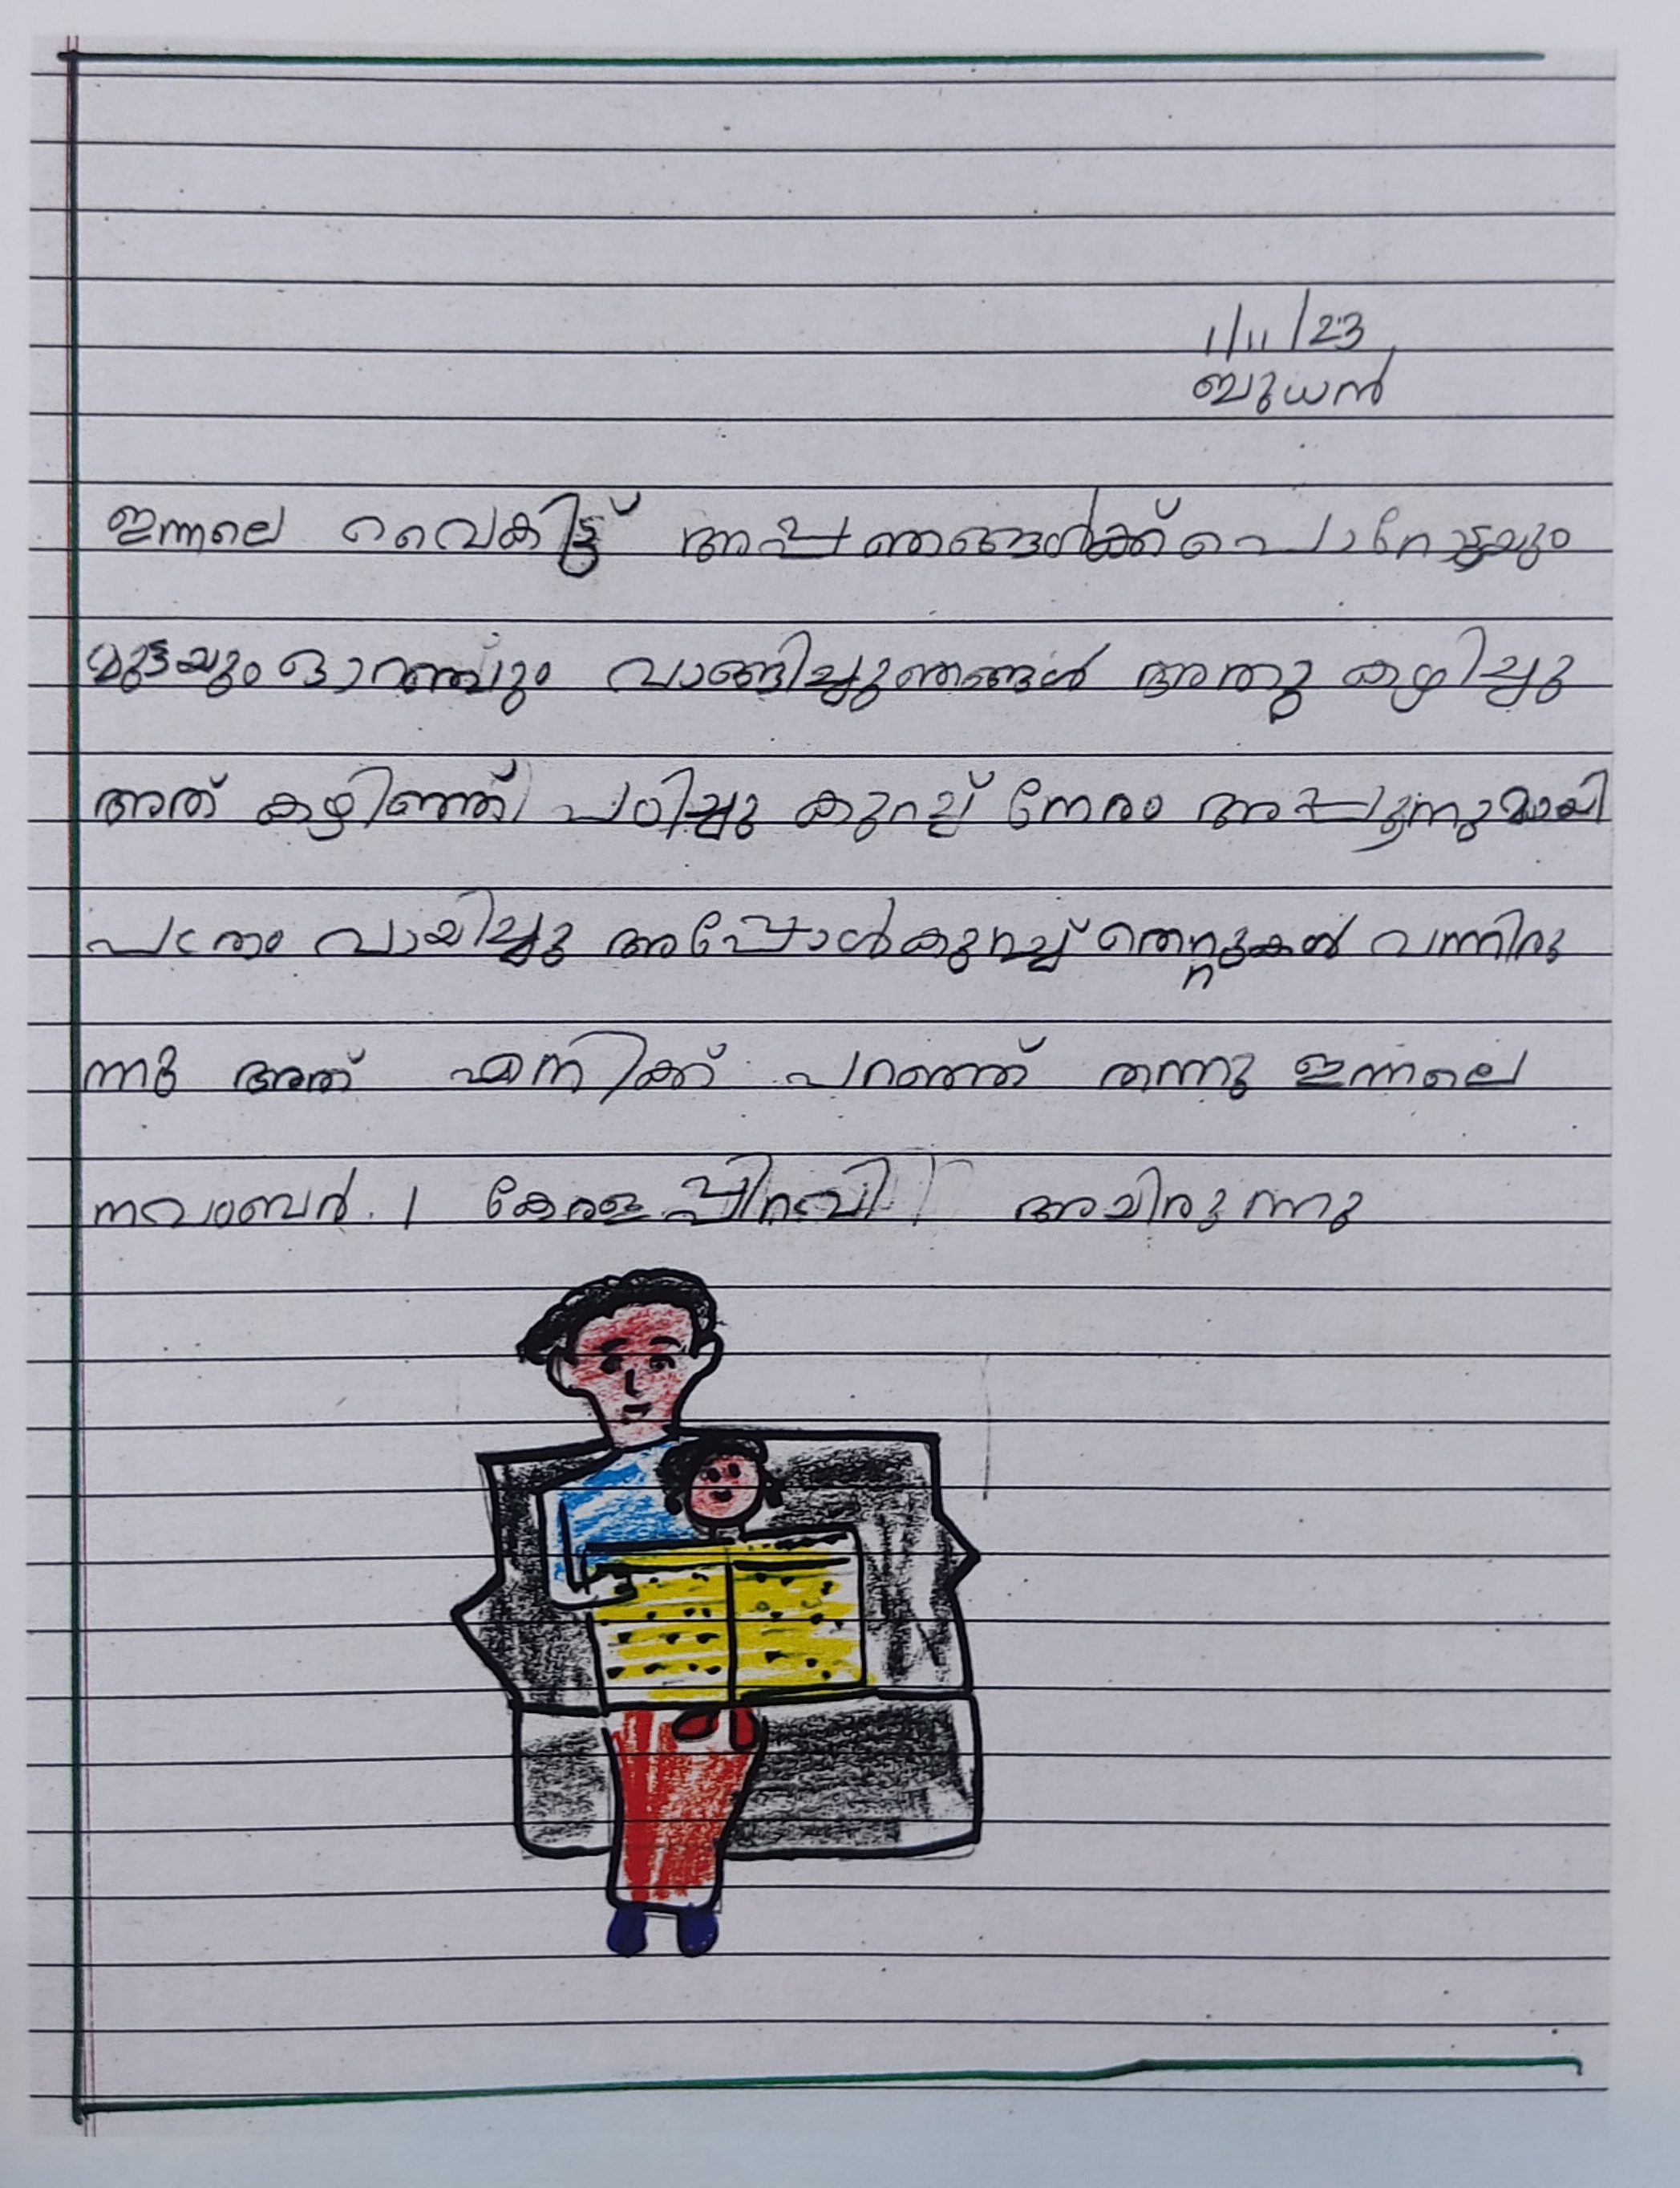 1/11/23
ബുധൻ
ഇന്നലെ വൈകിട്ട് അപ്പ ഞങ്ങൾക്ക് പൊറോട്ടയും
മുട്ടയും ഓറഞ്ചും വാങ്ങിച്ചു ഞങ്ങൾ അതു കഴിച്ചു
അത് കഴിഞ്ഞ് പഠിച്ചു കുറച്ച് നേരം അപ്പൂന്നുമായി
പത്രം വായിച്ചു അപ്പോൾ കുറച്ച് തെറ്റുകൾ വന്നിരു
ന്നു അത് എനിക്ക് പറഞ്ഞ് തന്നു ഇന്നലെ
നവംബർ. 1 കേരള പ്പിറവി അയിരുന്നു